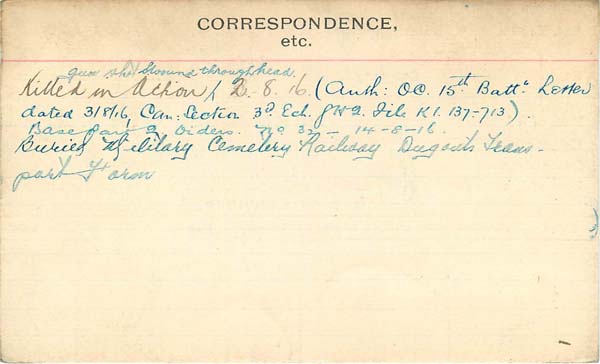 CORRESPONDENCE,
etc.
gun shot wound through head.
Killed in Action / 2.8.16. (Auth: O.C. 15th Battn Letter
dated 3/8/16, Can: Section 3rd Ech. GHQ. File K1. 137-713).
Base Part 2 Orders. No 32 - 14-8-16.
Buried Military Cemetery Railway Dugouts Trans-
port Farm